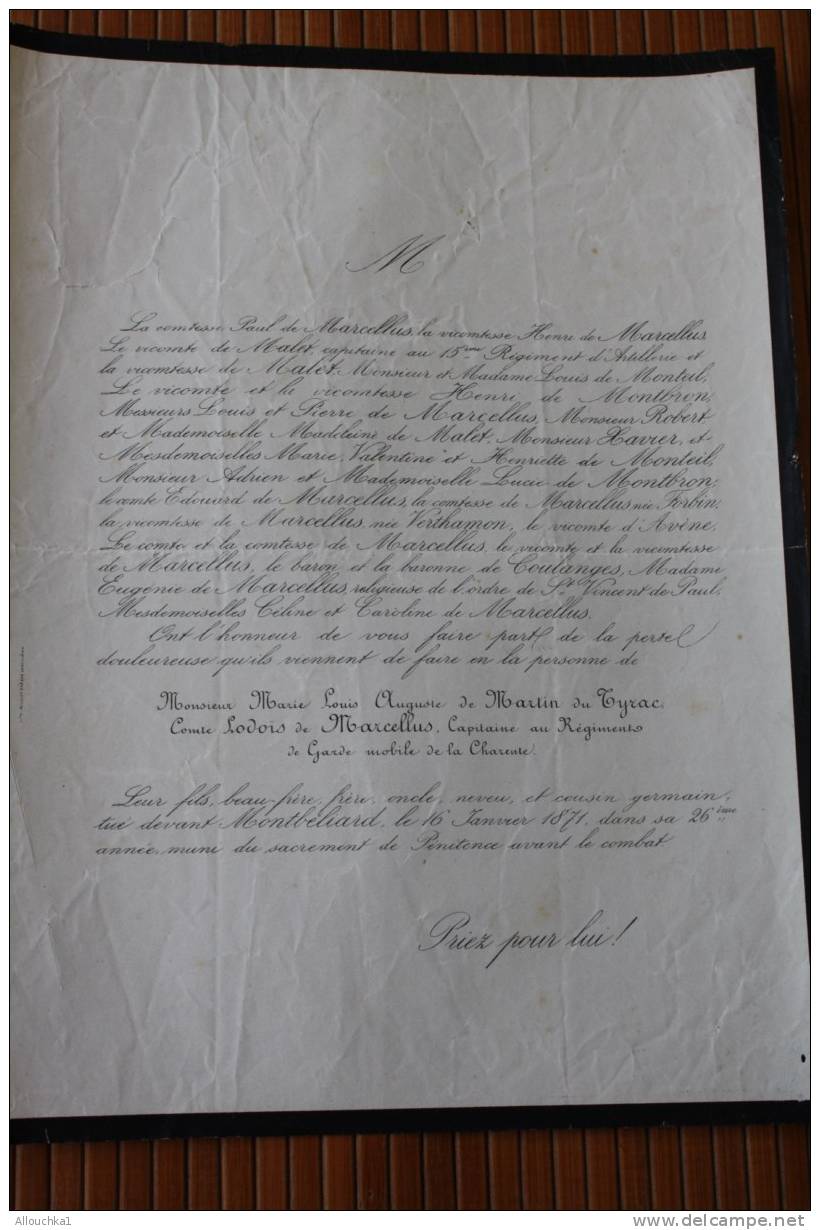 M
La comtesse Paul de Marcellus, la vicomtesse Henri de Marcellus,
Le vicomte de Malet, capitaine au 15me Régiment d'Artillerie et
la vicomtesse de Malet, Monsieur et Madame Louis de Monteil,
Le vicomte et la vicomtesse Henri de Montbron,
Messieurs Louis et Pierre de Marcellus, Monsieur Robert
et Mademoiselle Madeleine de Malet, Monsieur Xavier, et
Mesdemoiselles Marie, Valentine et Henriette de Monteil,
Monsieur Adrien et Mademoiselle Lucie de Montbron;
le comte Edouard de Marcellus, la comtesse de Marcellus née Forbin;
la vicomtesse de Marcellus, née Verthamon, le vicomte d'Avène,
Le comte et la comtesse de Marcellus, le vicomte et la vicomtesse
de Marcellus, le baron et la baronne de Coulanges, Madame
Eugénie de Marcellus, religieuse de l'ordre de St Vincent de Paul,
Mesdemoiselles Céline et Caroline de Marcellus.
Ont l'honneur de vous faire part de la perte
douleureuse qu'ils viennent de faire en la personne de
Monsieur Marie Louis Auguste de Martin du Tyrac,
Comte Lodois de Marcellus, Capitaine au Régiment
de Garde mobile de la Charente.
Leur fils, beau-frère, frère, oncle, neveu, et cousin germain,
tué devant Montbéliard, le 16 Janvier 1871, dans sa 26ème
année, muni du sacrement de Pénitence avant le combat
Priez pour lui!
Allouchka1
http://www.delcampe.net